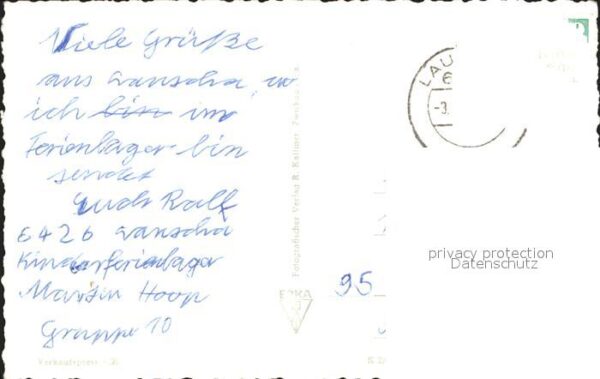 Viele Grüße
aus Lauscha, wo
ich bin im
Ferienlager bin
sendet
Euch Ralf
6426 Lauscha
Kinderferienlager
Martin Hoop
Gruppe 10
Fotografischer Verlag R. Kallmer, Zwickau
LAU
6
-3.
95
privacy protection
Datenschutz
Verkaufspreis